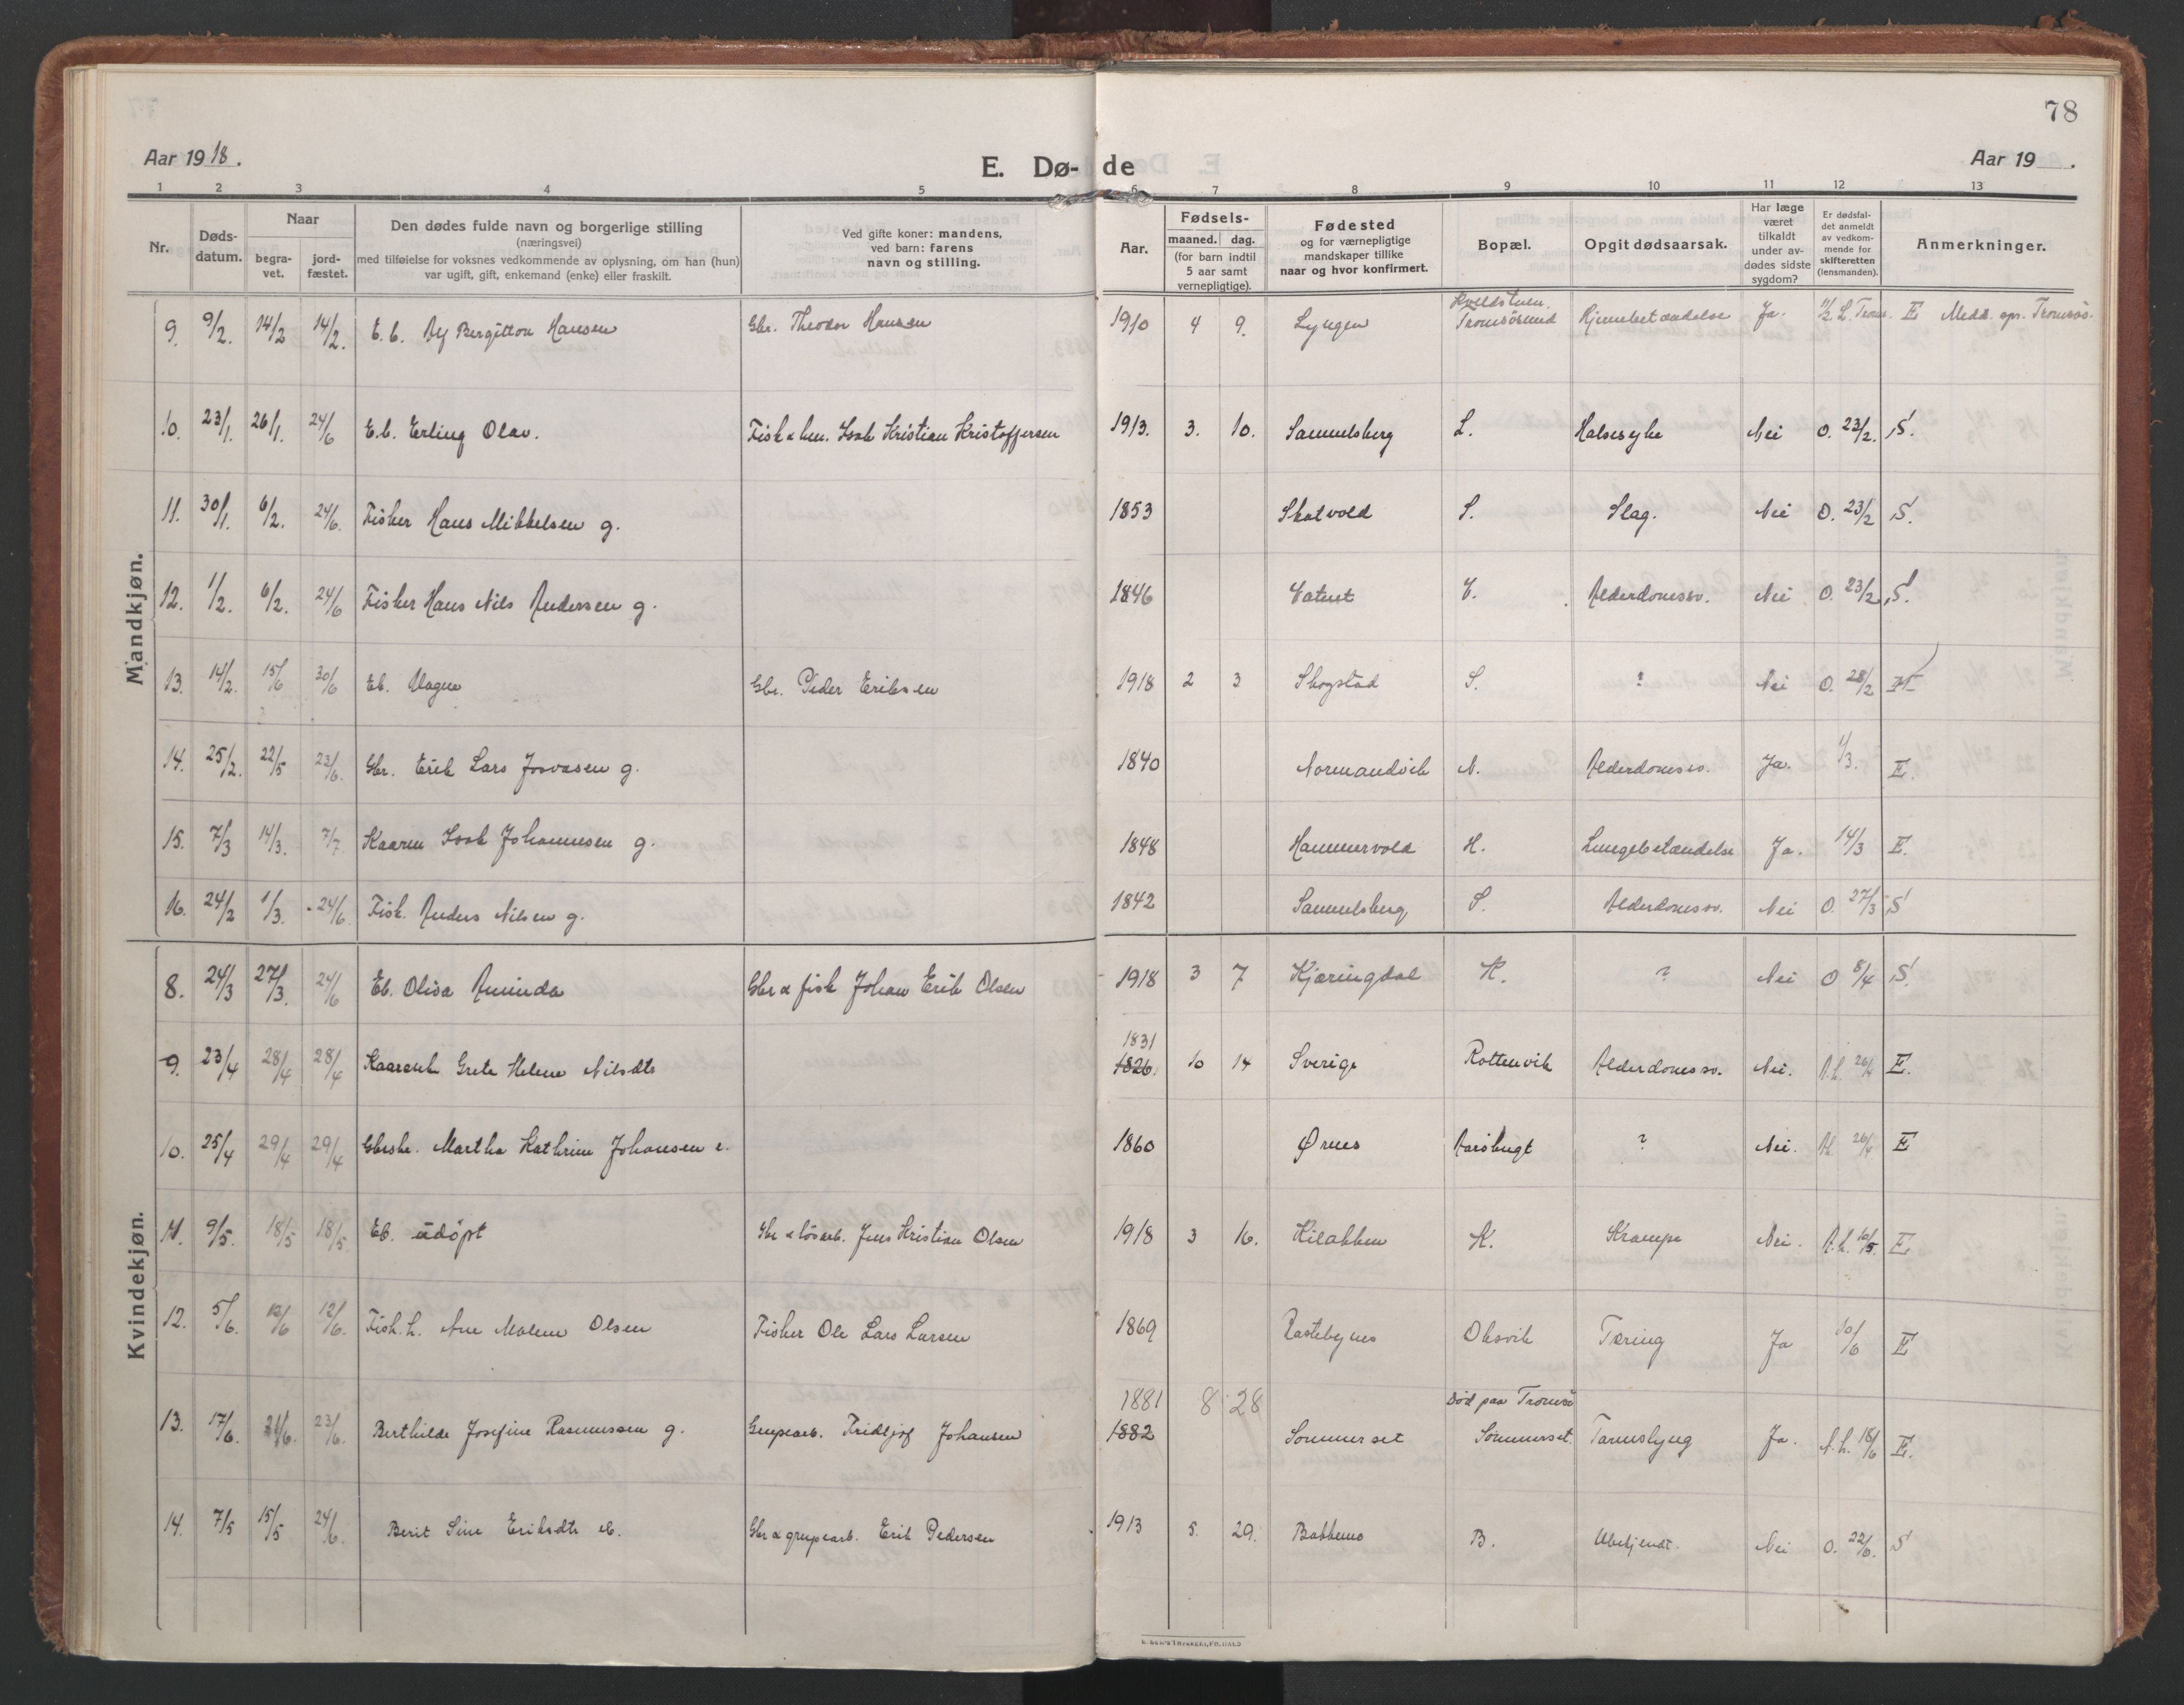 78
Aar 1918.
E. Dø- de
Aar 19 .
1 2 3 4 5 6 7 8 9 10 11 12 13
Nr.
Døds-
datum.
Naar
begra-
vet.
jord-
fæstet.
Den dødes fulde navn og borgerlige stilling
(næringsvei)
med tilføielse for voksnes vedkommende av oplysning, om han (hun)
var ugift, gift, enkemand (enke) eller fraskilt.
Ved gifte koner: mandens,
ved barn: farens
navn og stilling.
Aar.
Fødsels-
maaned. dag.
(for barn indtil
5 aar samt
vernepligtige).
Fødested
og for værnepligtige
mandskaper tillike
naar og hvor konfirmert.
Bopæl.
Opgit dødsaarsak.
Har læge
været
tilkaldt
under av-
dødes sidste
sygdom?
Er dødsfal-
det anmeldt
av vedkom-
mende for
skifteretten
(lensmanden).
Anmerkninger.
Mandkjøn.
9. 9/2. 14/2 14/2. E. b. Alf Bergitton Hansen Gbr. Theodor Hansen 1910 4 9. Lyngen Tromsösund Hjernebetændelse Ja. E Medd. spr. Tromsøs.
10. 23/1. 26/1. 24/6 E.b. Erling Olav. Fisk & hm. Isak Kristian Kristoffersen 1913. 3. 10. Samuelsberg L. Halsesyke Nei O. 23/2. S.
11. 30/1. 6/2. 24/6. Fisker Hans Mikkelsen g. 1853 Skatvold S. Slag. Nei O. 23/2 S.
12. 1/2. 6/2. 24/6 Fisker Hans Nils Andersen g. 1846 V. Alderdomssv. Nei O. 23/2 S.
13. 14/2. 15/6 30/6 Eb. Magne Gbr. Peder Eriksen 1918 2 3 Skogstad S. ? Nei O. 28/2
14. 25/2. 22/5 23/6. Gbr. Erik Lars Josvasen g. 1840 Normandvik N. Alderdomssv. Ja. 1/3. E.
15. 7/3 14/3. 7/7 Kaaren Isak Johannesen g. 1848 Hammervold H. Lungebetændelse Ja. 14/3 E.
16. 24/2 1/3. 24/6. Fisk. Anders Nilsen g. 1842 Samuelsberg S. Alderdomssv. Nei O. 27/3 S
Kvindekjøn.
8. 24/3 27/3. 24/6 Eb. Olisa Aminda Gbr & fisk Johan Erik Olsen 1918 3 7 Kjæringdal K. ? Nei O 8/4 S.
1831
9. 23/4 28/4 28/4 Kaarenk Grete Helene Nilsdtr 1826. 10 14 Sverige Rottenvik Alderdomssv. Nei. A.L. 26/4 E.
10. 25/4 29/4 29/4 Gbrske. Martha Kathrine Johansen e. 1860 Ørnes Aarsbugt ? Nei. 26/4 E
11. 9/5. 18/5 18/5. Eb. udöpt Gbr & lösarb. Jens Kristian Olsen 1918 3 16. Kilakken K. Krampe Nei. A.L. 10/5. E
12. 5/6. 12/6 12/6. Fisk.h. Ane Malene Olsen Fisker Ole Lars Larsen 1869 Rastebynes Oksvik Tæring Ja 10/6 E
1881 8 28 Död paa Tromsö
13. 17/6. 21/6. 23/6. Berthilde Josefine Rasmussen g. Grupearb. Fridtjof Johansen 1882 Sommerset Sommerset Tarmslyng Ja. A.L. 18/6 E.
14. 7/5 15/5 24/6. Berit Sine Eriksdtr eb. Gbr & grupearb. Erik Pedersen 1913 5. 29. Bakkemo B. Ubekjendt. Nei O. 22/6. S